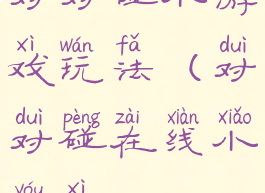 xì wán fǎ duì
戏玩法(对
duì pèng zài xiàn xiǎo
对碰在线小
yóu xì